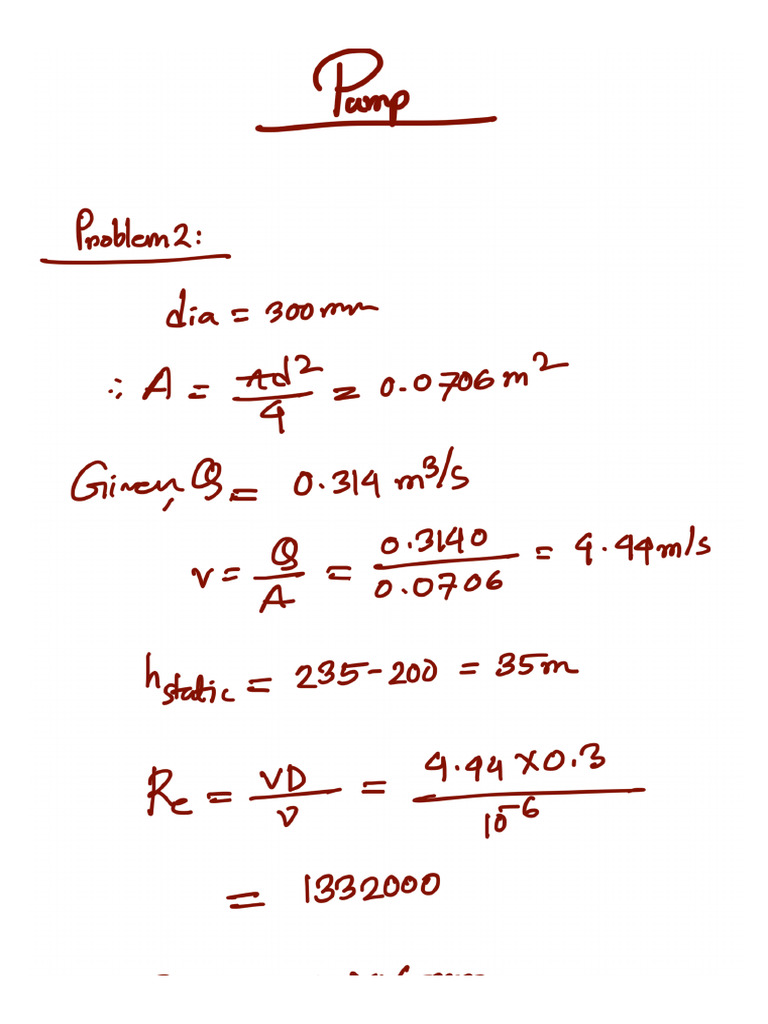 Pump
Problem 2:
dia = 300 mm
∴ A = πd²/4 = 0.0706 m²
Given, Q = 0.314 m³/s
v = Q/A = 0.3140/0.0706 = 4.44 m/s
h_static = 235 - 200 = 35 m
Re = VD/ν = 4.44 × 0.3/10⁻⁶
= 1332000